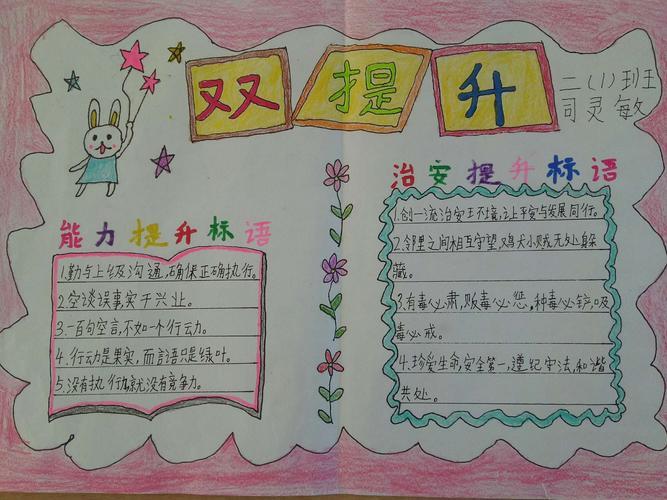 双提升
二（1）班
司灵敏
能力提升标语
1.勤与上级沟通，确保正确执行。
2.空谈误事实干兴业。
3.一百句空言，不如一个行动。
4.行动是果实，而言语只是绿叶。
5.没有执行力，就没有竞争力。
治安提升标语
1.创一流治安王不境，让平安与发展同行。
2.邻里之间相互守望，鸡犬小贼无处躲
藏。
3.有毒必肃，贩毒必惩，种毒必铲，吸
毒必戒。
4.珍爱生命，安全第一，遵纪守法，和谐
共处。